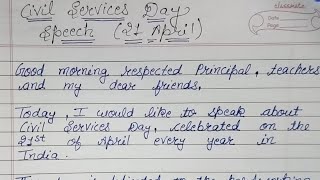 Civil Services Day
Speech (21 April)
classmate
Date
Page
Good morning respected Principal, teachers
and my dear friends,
Today, I would like to speak about
Civil Services Day, celebrated on the
21st of April every year in
India.